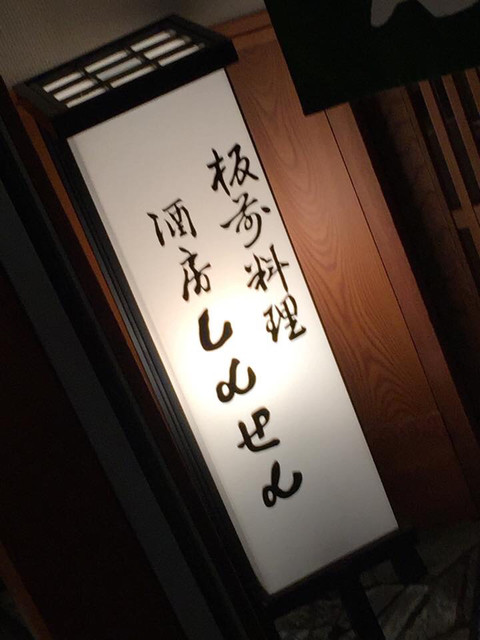 板前料理
酒房しんせん